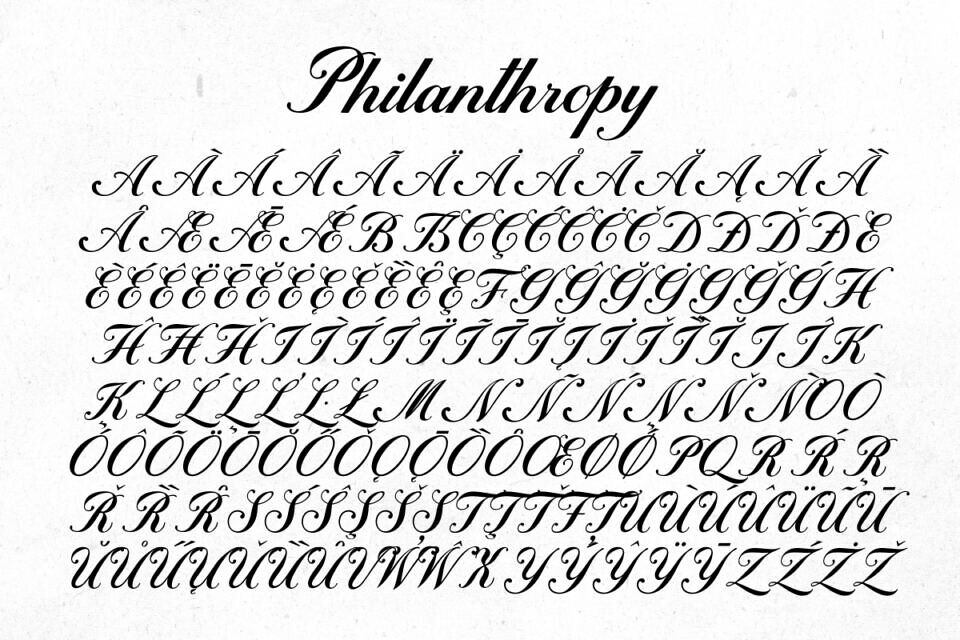 Philanthropy
A À Á Â Ã Ä Ȧ Å Ā Ă Ą Ǎ Ȁ
Ȃ Æ Ǣ Ǽ B Ɓ C Ç Ć Ĉ Ċ Č D Đ Ď Đ E
È É Ê Ë Ē Ĕ Ė Ę Ě Ȅ Ȇ Ȩ F G Ĝ Ğ Ġ Ģ Ǧ Ǵ H
Ĥ Ħ Ȟ I Ì Í Î Ï Ĩ Ī Ĭ Į İ Ǐ Ȉ Ȋ J Ĵ K
Ķ L Ĺ Ļ Ľ Ŀ Ł M N Ñ Ń Ņ Ň Ǹ O Ò
Ó Ô Õ Ö Ō Ŏ Ő Ǒ Ǫ Ǭ Ȍ Ȏ Œ Ø Ǿ P Q R Ŕ Ŗ
Ř Ȑ Ȓ S Ś Ŝ Ş Š Ș T Ţ Ť Ŧ Ț U Ù Ú Û Ü Ũ Ū
Ŭ Ů Ű Ų Ǔ Ȕ Ȗ V W Ŵ X Y Ý Ŷ Ÿ Ȳ Z Ź Ż Ž